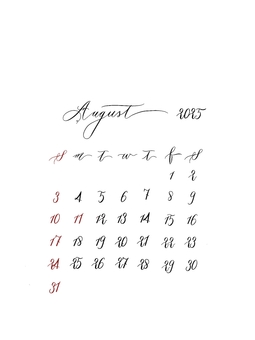 August 2025
S m t w t f S
1 2
3 4 5 6 7 8 9
10 11 12 13 14 15 16
17 18 19 20 21 22 23
24 25 26 27 28 29 30
31